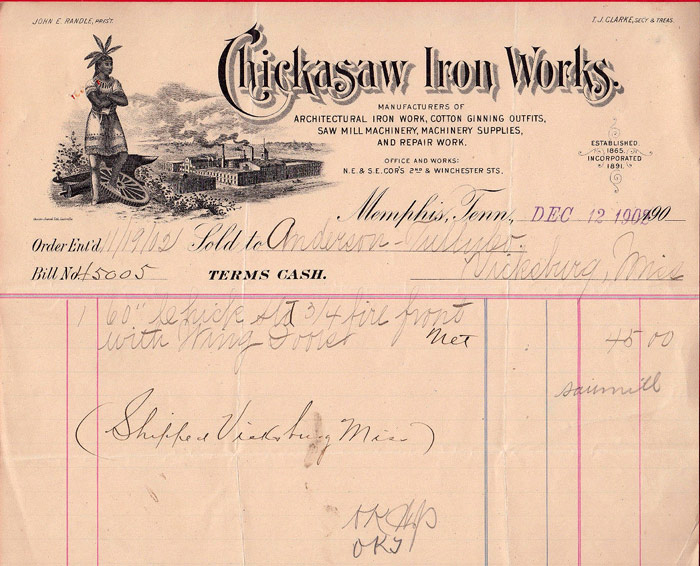 JOHN E. RANDLE, PRES'T.
T. J. CLARKE, SEC'Y & TREAS.
Chickasaw Iron Works.
MANUFACTURERS OF
ARCHITECTURAL IRON WORK, COTTON GINNING OUTFITS,
SAW MILL MACHINERY, MACHINERY SUPPLIES,
AND REPAIR WORK.
OFFICE AND WORKS:
N.E. & S.E. COR'S 2ND & WINCHESTER STS.
ESTABLISHED
1865.
INCORPORATED
1891.
Memphis, Tenn., DEC 12 1902 190
Order Ent'd 11/19/02 Sold to Anderson-Tully Co.
Vicksburg, Miss
Bill No. 45005 TERMS CASH.
1 60" Chick std 3/4 fire front
with Wing Doors Net 45 00
sawmill
(Shipped Vicksburg Miss)
OK
OKT